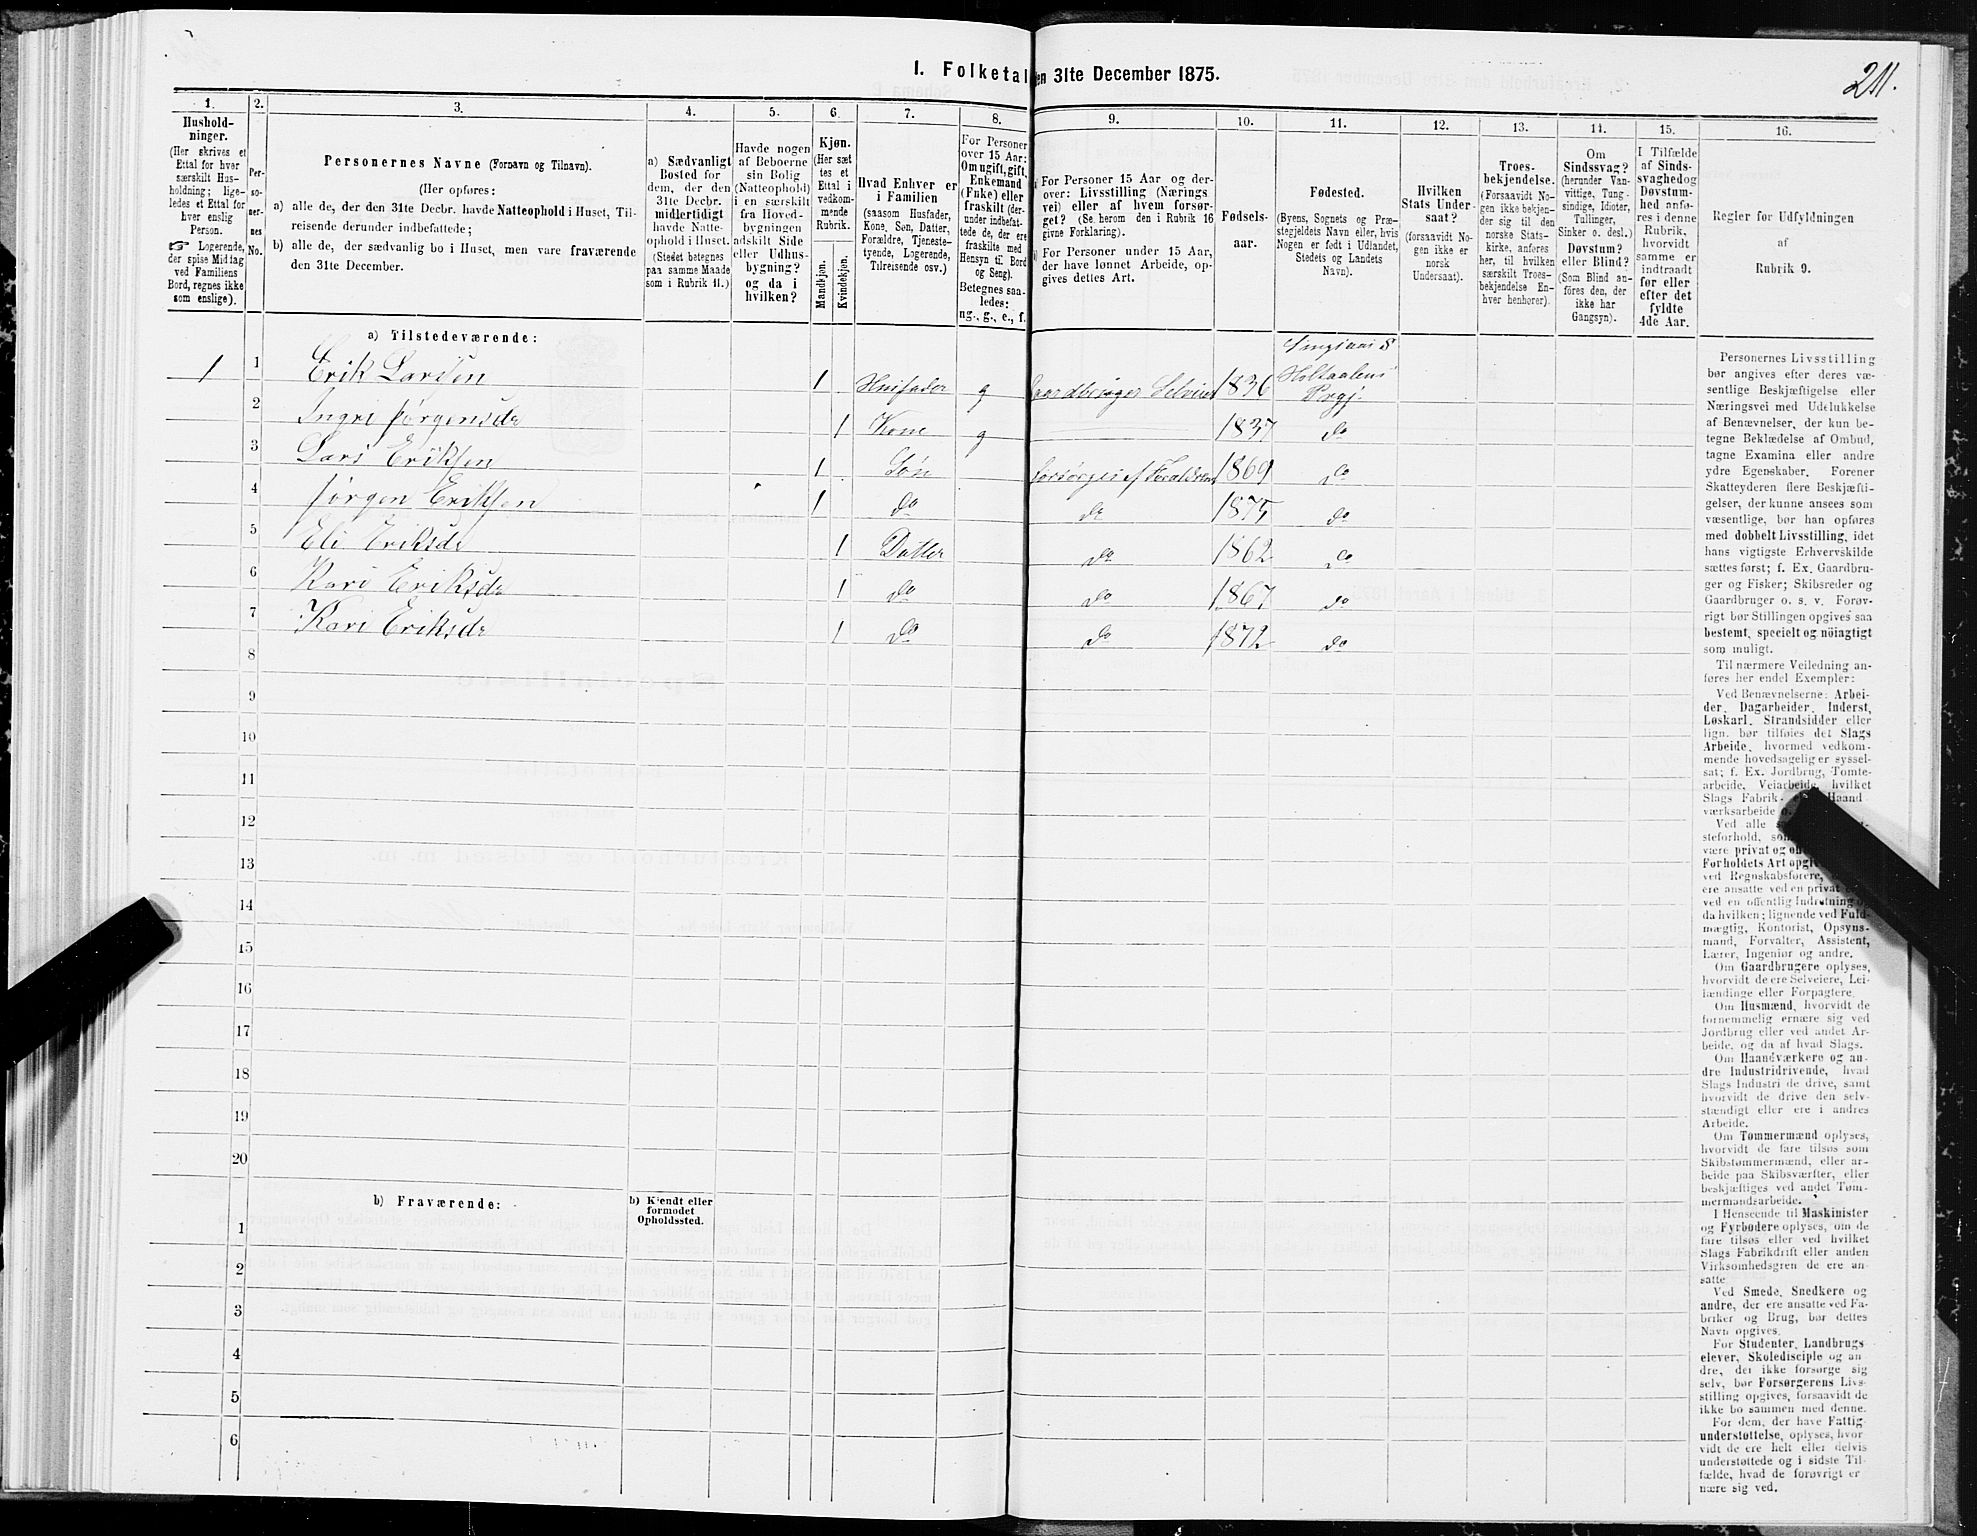 211.
I. Folketal den 31te December 1875.
1. 2. 3. 4. 5. 6. 7. 8. 9. 10. 11. 12. 13. 14. 15. 16.
Hushold-
ninger.
(Her skrives et
Ettal for hver
særskilt Hus-
holdning; lige-
ledes et Ettal for
hver enslig
Person.
☞ Logerende,
der spise Middag
ved Familiens
Bord, regnes ikke
som enslige).
Per-
so-
ner-
nes
No.
Personernes Navne (Fornavn og Tilnavn).
(Her opføres:
a) alle de, der den 31te Decbr. havde Natteophold i Huset, Til-
reisende derunder indbefattede;
b) alle de, der sædvanlig bo i Huset, men vare fraværende
den 31te December.
a) Sædvanligt
Bosted for
dem, der den
31te Decbr.
midlertidigt
havde Natte-
ophold i Huset.
(Stedet betegnes
paa samme Maade
som i Rubrik 11.)
Havde nogen
af Beboerne
sin Bolig
(Natteophold)
i en særskilt
fra Hoved-
bygningen
adskilt Side
eller Udhus-
bygning?
og da i
hvilken?
Kjøn.
(Her sæt
tes et
Ettal i
vedkom-
mende
Rubrik.
Mandkjøn.
Kvindekjøn.
Hvad Enhver er
i Familien
(saasom Husfader,
Kone, Søn, Datter,
Forældre, Tjeneste-
tyende, Logerende,
Tilreisende osv.)
For Personer
over 15 Aar:
Om ugift, gift,
Enkemand
(Enke) eller
fraskilt (der-
under indbefat-
tede de, der ere
fraskilte med
Hensyn til Bord
og Seng).
Betegnes saa-
ledes:
ng., g., e., f.
For Personer 15 Aar og der-
over: Livsstilling (Nærings
vei) eller af hvem forsør-
get? (Se herom den i Rubrik 16
givne Forklaring).
For Personer under 15 Aar,
der have lønnet Arbeide, op-
gives dettes Art.
Fødsels-
aar.
Fødested.
(Byens, Sognets og Præ-
stegjeldets Navn eller, hvis
Nogen er født i Udlandet,
Stedets og Landets
Navn).
Hvilken
Stats Under-
saat?
(forsaavidt No-
gen ikke er
norsk
Undersaat).
Troes-
bekjendelse.
(Forsaavidt No-
gen ikke bekjen-
der sig til den
norske Stats-
kirke, anføres
her, til hvilken
særskilt Troes-
bekjendelse En-
hver henhører).
Om
Sindssvag?
(herunder Van-
vittige, Tung-
sindige, Idioter,
Tullinger,
Sinker o. desl.)
Døvstum?
eller Blind?
(Som Blind an-
føres den, der
ikke har
Gangsyn).
I Tilfælde
af Sinds-
svaghed og
Døvstum-
hed anfø-
res i denne
Rubrik,
hvorvidt
samme er
indtraadt
før eller
efter det
fyldte
4de Aar.
Regler for Udfyldningen
af
Rubrik 9.
a) Tilstedeværende:
1 1 Erik Larsen 1 Husfader g Gaardbruger Selveier 1836 Holtaalens Prgj.
2 Ingri Jørgensdr 1 Kone g 1837 do
3 Lars Eriksen 1 Søn forsørges af Forældrene 1869 do
4 Jørgen Eriksen 1 do do 1875 do
5 Eli Eriksdr 1 Datter do 1862 do
6 Kari Eriksdr 1 do do 1867 do
7 Kari Eriksdr 1 do do 1872 do
8
9
10
11
12
13
14
15
16
17
18
19
20
b) Fraværende:
b) Kjendt eller
formodet
Opholdssted.
1
2
3
4
5
6
Personernes Livsstilling
bør angives efter deres væ-
sentlige Beskjæftigelse eller
Næringsvei med Udelukkelse
af Benævnelser, der kun be-
tegne Beklædelse af Ombud,
tagne Examina eller andre
ydre Egenskaber. Forener
Skatteyderen flere Beskjæfti-
gelser, der kunne ansees som
væsentlige, bør han opføres
med dobbelt Livsstilling, idet
hans vigtigste Erhvervskilde
sættes først; f. Ex. Gaardbru-
ger og Fisker; Skibsreder og
Gaardbruger o. s. v. Forøv-
rigt bør Stillingen opgives saa
bestemt, specielt og nöiagtigt
som muligt.
Til nærmere Veiledning an-
føres her endel Exempler:
Ved Benævnelserne: Arbei-
der, Dagarbeider, Inderst,
Løskarl, Strandsidder eller
lign. bør tilføies det Slags
Arbeide, hvormed vedkom-
mende hovedsagelig er syssel-
sat; f. Ex. Jordbrug, Tomte-
arbeide, Veiarbeide, hvilket
Slags Fabrik- Haand
værksarbeide
Ved alle
steforhold,
være privat og
Forholdets Art
ved Regnskabsførere,
ere ansatte ved en privat
ved en offentlig Indretning
da hvilken; lignende ved Fuld-
mægtig, Kontorist, Opsyns-
mand, Forvalter, Assistent,
Lærer, Ingeniør og andre.
Om Gaardbrugere oplyses,
hvorvidt de ere Selveiere, Lei-
lændinge eller Forpagtere.
Om Husmænd, hvorvidt de
fornemmelig ernære sig ved
Jordbrug eller ved andet Ar-
beide, og da af hvad Slags.
Om Haandværkere og an-
dre Industridrivende, hvad
Slags Industri de drive, samt
hvorvidt de drive den selv-
stændigt eller ere i andres
Arbeide.
Om Tømmermænd oplyses,
hvorvidt de fare tilsøs som
Skibstømmermænd, eller ar-
beide paa Skibsværfter, eller
beskjæftiges ved andet Tøm-
mermandsarbeide.
I Henseende til Maskinister
og Fyrbødere oplyses, om de
fare tilsøs eller ved hvilket
Slags Fabrikdrift eller anden
Virksomhedsgren de ere an-
satte
Ved Smede, Snedkere og
andre, der ere ansatte ved Fa-
briker og Brug, bør dettes
Navn opgives.
For Studenter, Landbrugs-
elever, Skoledisciple og an
dre, der ikke forsørge sig
selv, bør Forsørgerens Livs-
stilling opgives, forsaavidt de
ikke bo sammen med denne.
For dem, der have Fattig-
understøttelse, oplyses, hvor-
vidt de ere helt eller delvis
understøttede og i sidste Til-
fælde, hvad de forøvrigt er
nære sig ved.